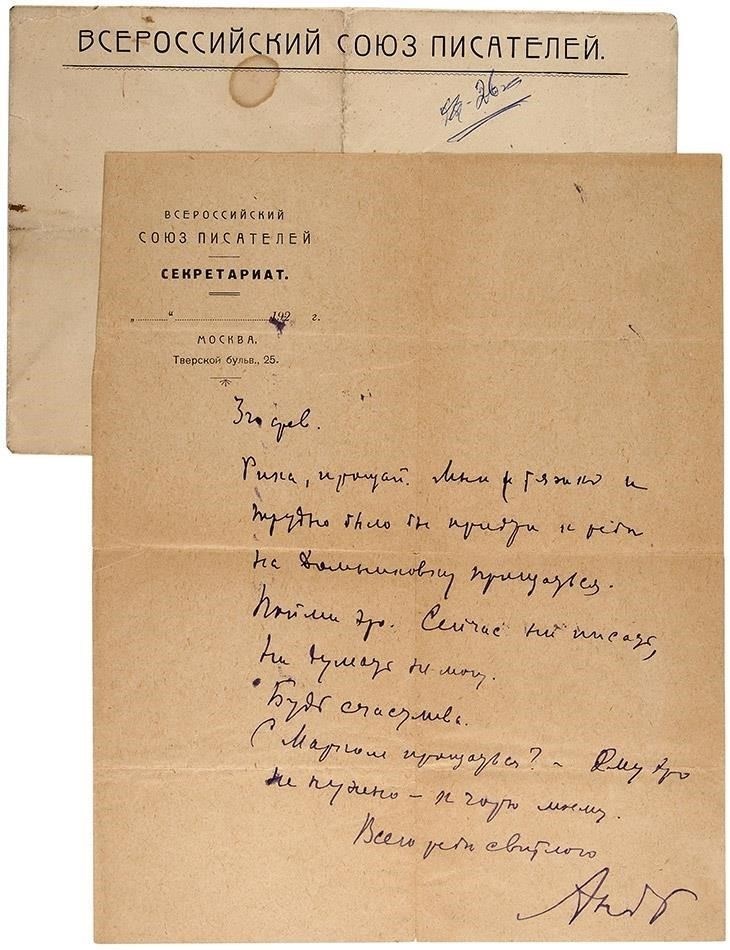 ВСЕРОССИЙСКИЙ СОЮЗ ПИСАТЕЛЕЙ.
ВСЕРОССИЙСКИЙ
СОЮЗ ПИСАТЕЛЕЙ
СЕКРЕТАРИАТ.
„ ........ “ ........................ 192 г.
МОСКВА,
Тверской бульв., 25.
Рина, прощай. Мне тяжко и
трудно было бы придти к тебе
на Домниковку прощаться.
Пойми это. Сейчас ни писать,
ни думать не могу.
Будь счастлива.
С Марком прощаться? – Ему это
не нужно – к горю моему.
Всего тебе светлого